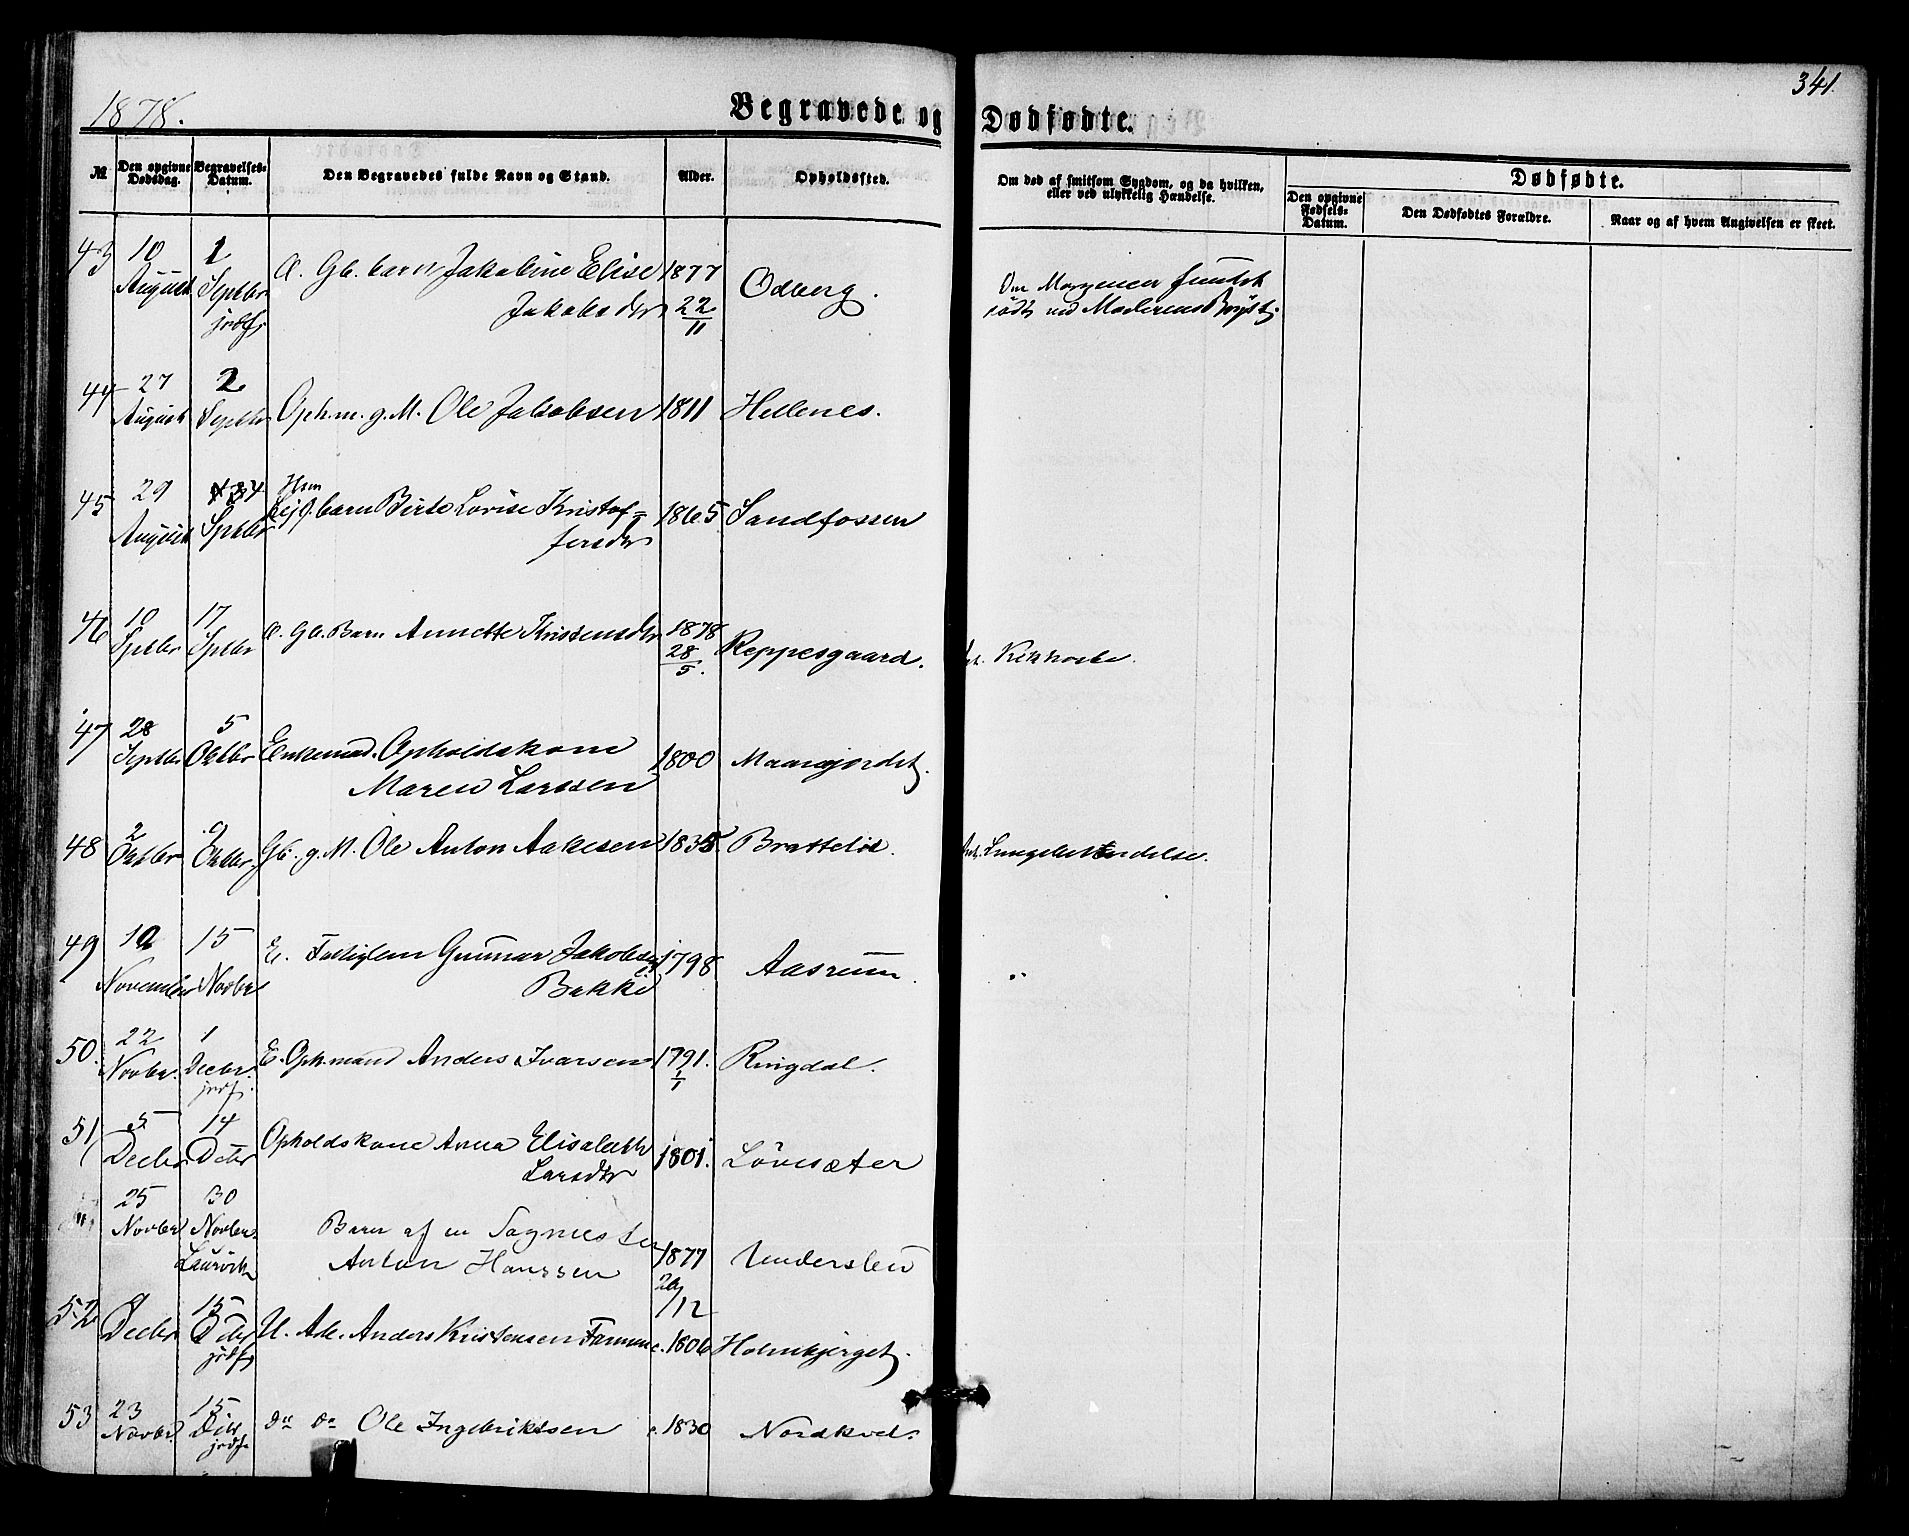 1878.
Begravede og Dødfødte.
341.
№
Den opgivne Dødsdag.
Begravelses-Datum.
Den Begravedes fulde Navn og Stand.
Alder.
Opholdssted.
Om død af smitsom Sygdom, og da hvilken, eller ved ulykkelig Hændelse.
Dødfødte.
Den opgivne Fødsels-Datum.
Den Dødfødtes Forældre.
Naar og af hvem Angivelsen er skeet.
43 10 August 1 Septbr jordf. Gb. barn Jakobine Elise Jakobsdtr 1877 22/11 Odberg. Om Morgenen fundet død ved Moderens Bryst.
44 27 August 2 Septbr Oph.m. g. M. Ole Jakobsen 1811 Hellenes.
45 29 August 4 Sptbr Hsm barn Birte Lovise Kristof=
fersdtr 1865 Sandfossen
46 10 Sptbr 17 Sptbr Gb. Barn Annette Kristensdtr 1878 28/5. Reppesgaard. Kikhoste.
47 28 Septbr 5 Oktbr Enkemad. Opholdskone
Maren Larssen 1800
48 2 Oktbr 9 Oktbr Gb. g. M. Ole Anton Aakesen 1835 Brattelie. Lungebetændelse.
49 10 November 15 Novbr E. Fattiglem Gunnar Jakobsen
Bakke 1798 Aasrum
50. 22 Novbr. 1 Decbr. jordf. E. Oph.mand Anders Ivarsen 1791. 1/1 Ringdal.
51 5 Decbr 14 Dcbr Opholdskone Anna Elisabeth
Larsdtr 1801. Lövesæter
25 Novbr 30 Novbr. Laurvik Barn af en Sagmester
Anton Hanssen 1877 20/12 Undersbu
52 9 Decbr 15 Dcbr jordf U. Arb. Anders Kristensen Farmen c. 1806 Holmbjerget.
53 23 Novbr. 15 Dcbr jordf do do Ole Ingebriktsen c. 1830 Nordkvel.